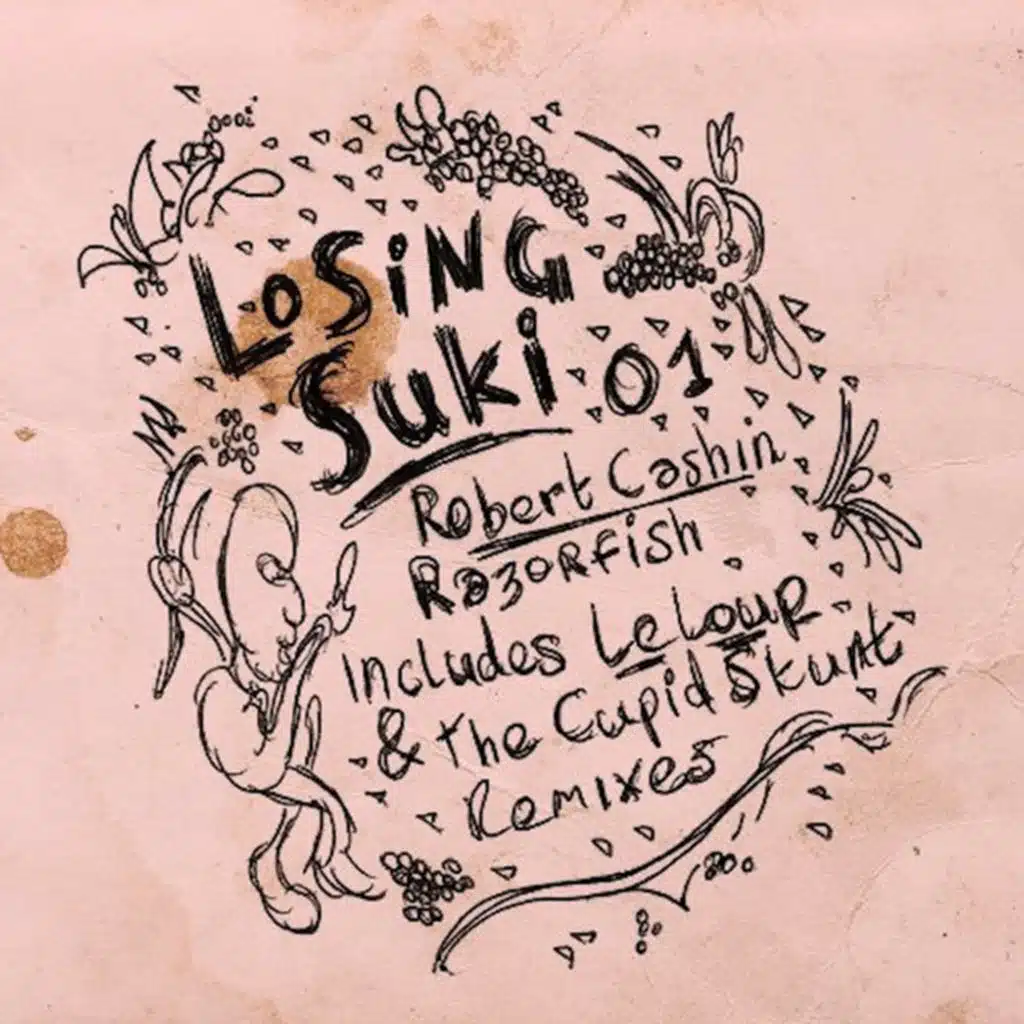 LoSiNG
Suki 01
Robert Cashin
Razorfish
Includes Le Loup
& the Cupid Skunt
Remixes